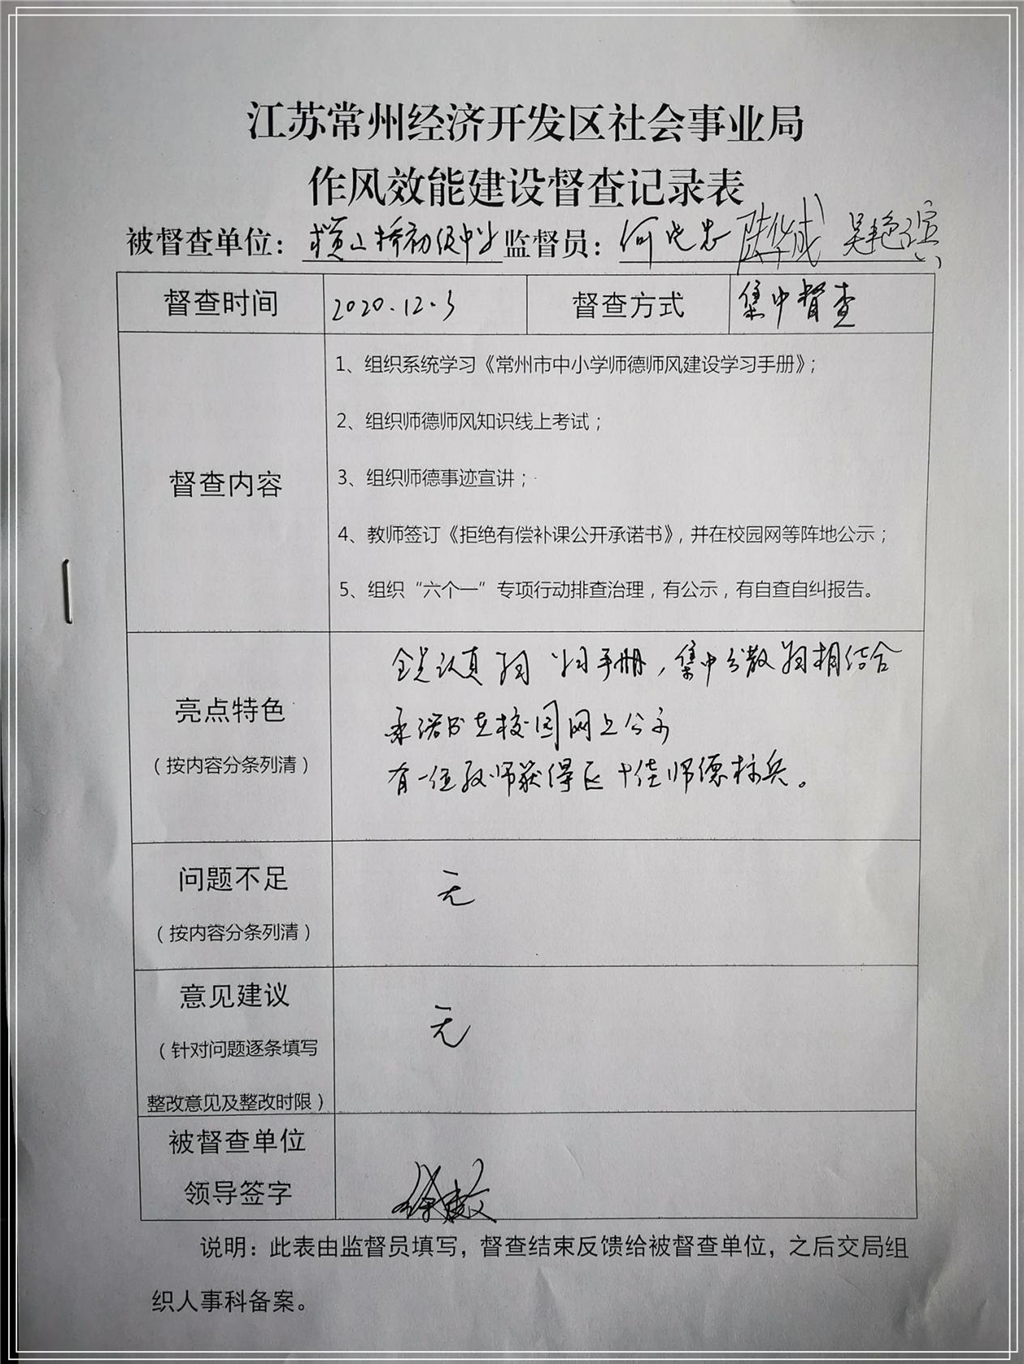 江苏常州经济开发区社会事业局
作风效能建设督查记录表
被督查单位：横山桥初级中学 监督员：何 忠 陆华成 吴艳滨
督查时间 2020.12.3 督查方式 集中督查
1、组织系统学习《常州市中小学师德师风建设学习手册》；
2、组织师德师风知识线上考试；
督查内容 3、组织师德事迹宣讲；
4、教师签订《拒绝有偿补课公开承诺书》，并在校园网等阵地公示；
5、组织“六个一”专项行动排查治理，有公示，有自查自纠报告。
全员认真 手册，集中分散 相结合
亮点特色 承诺书在校园网上公示
（按内容分条列清） 有一位教师获得区十佳师德标兵。
问题不足 无
（按内容分条列清）
意见建议
（针对问题逐条填写 无
整改意见及整改时限）
被督查单位
领导签字
说明：此表由监督员填写，督查结束反馈给被督查单位，之后交局组
织人事科备案。